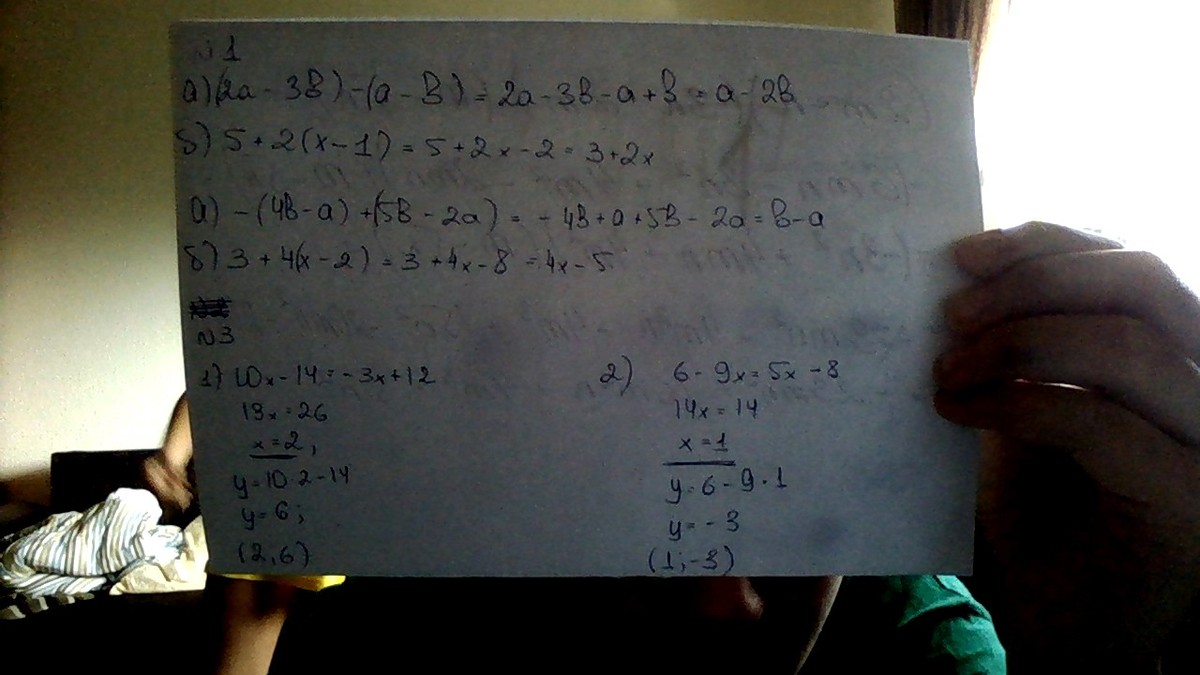 N1
а) (2a - 3b) - (a - b) = 2a - 3b - a + b = a - 2b
б) 5 + 2(x - 1) = 5 + 2x - 2 = 3 + 2x
а) - (4b - a) + (5b - 2a) = - 4b + a + 5b - 2a = b - a
б) 3 + 4(x - 2) = 3 + 4x - 8 = 4x - 5
N3
1) 10x - 14 = - 3x + 12
13x = 26
x = 2;
y = 10 · 2 - 14
y = 6;
(2, 6)
2) 6 - 9x = 5x - 8
14x = 14
x = 1
y = 6 - 9 · 1
y = - 3
(1; -3)